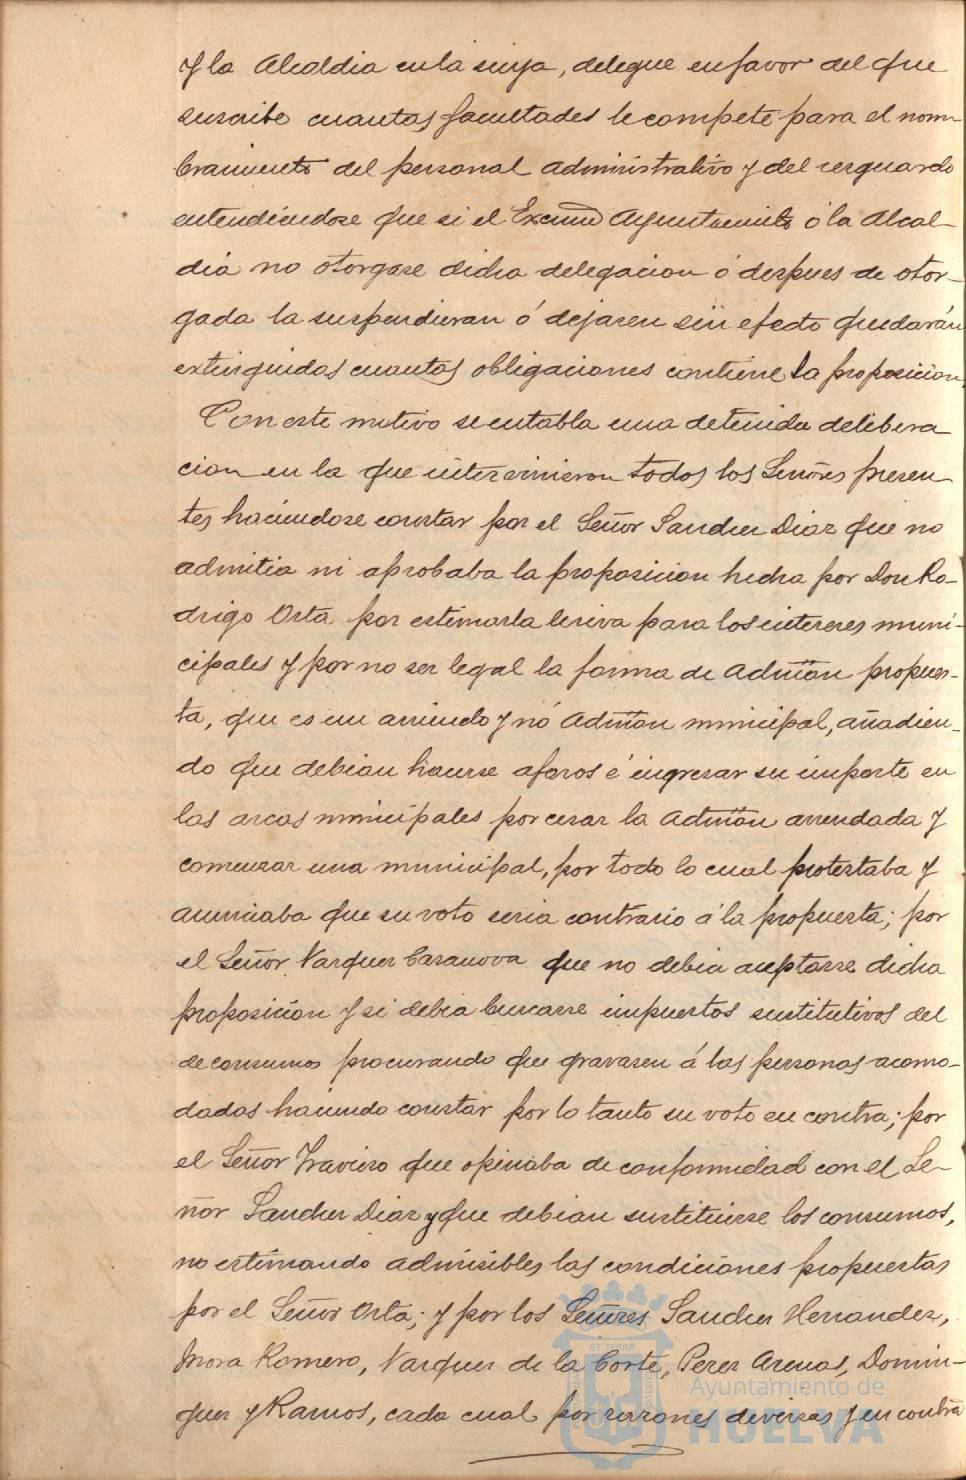 y la Alcaldia en la suya, delegue en favor del que
suscribe cuantas facultades le compete para el nom-
bramiento del personal administrativo y del resguardo
entendiendose que si el Excmo Ayuntamiento ó la Alcal-
dia no otorgase dicha delegacion ó despues de otor-
gada la suspendieran ó dejasen sin efecto quedarán
extinguidas cuantas obligaciones contiene la proposicion.
Con este motivo se entabla una detenida delibera
cion en la que intervinieron todos los Señores presen
tes haciendose constar por el Señor Sanchez Diaz que no
admitia ni aprobaba la proposicion hecha por Don Ro-
drigo Orta por estimarla lesiva para los intereses muni-
cipales y por no ser legal la forma de Admon propues-
ta, que es un arriendo y nó Admon municipal, añadien-
do que debian hacerse aforos é ingresar su importe en
las arcas municipales por cesar la Admon arrendada y
comenzar una municipal, por todo lo cual protestaba y
anunciaba que su voto seria contrario á la propuesta; por
el Señor Vazquez Casanova que no debia aceptarse dicha
proposición y si debia buscarse impuestos sustitutivos del
de consumos procurando que gravasen á las personas acomo-
dadas haciendo constar por lo tanto su voto en contra; por
el Señor Travieso que opinaba de conformidad con el Se-
ñor Sanchez Diaz y que debian sustituirse los consumos,
no estimando admisibles las condiciones propuestas
por el Señor Orta; y por los Señores Sanchez Hernandez,
Mora Romero, Vazquez de la Corte, Perez Arenas, Domin-
guez y Ramos, cada cual por razones diversas y en contra
Ayuntamiento de
HUELVA